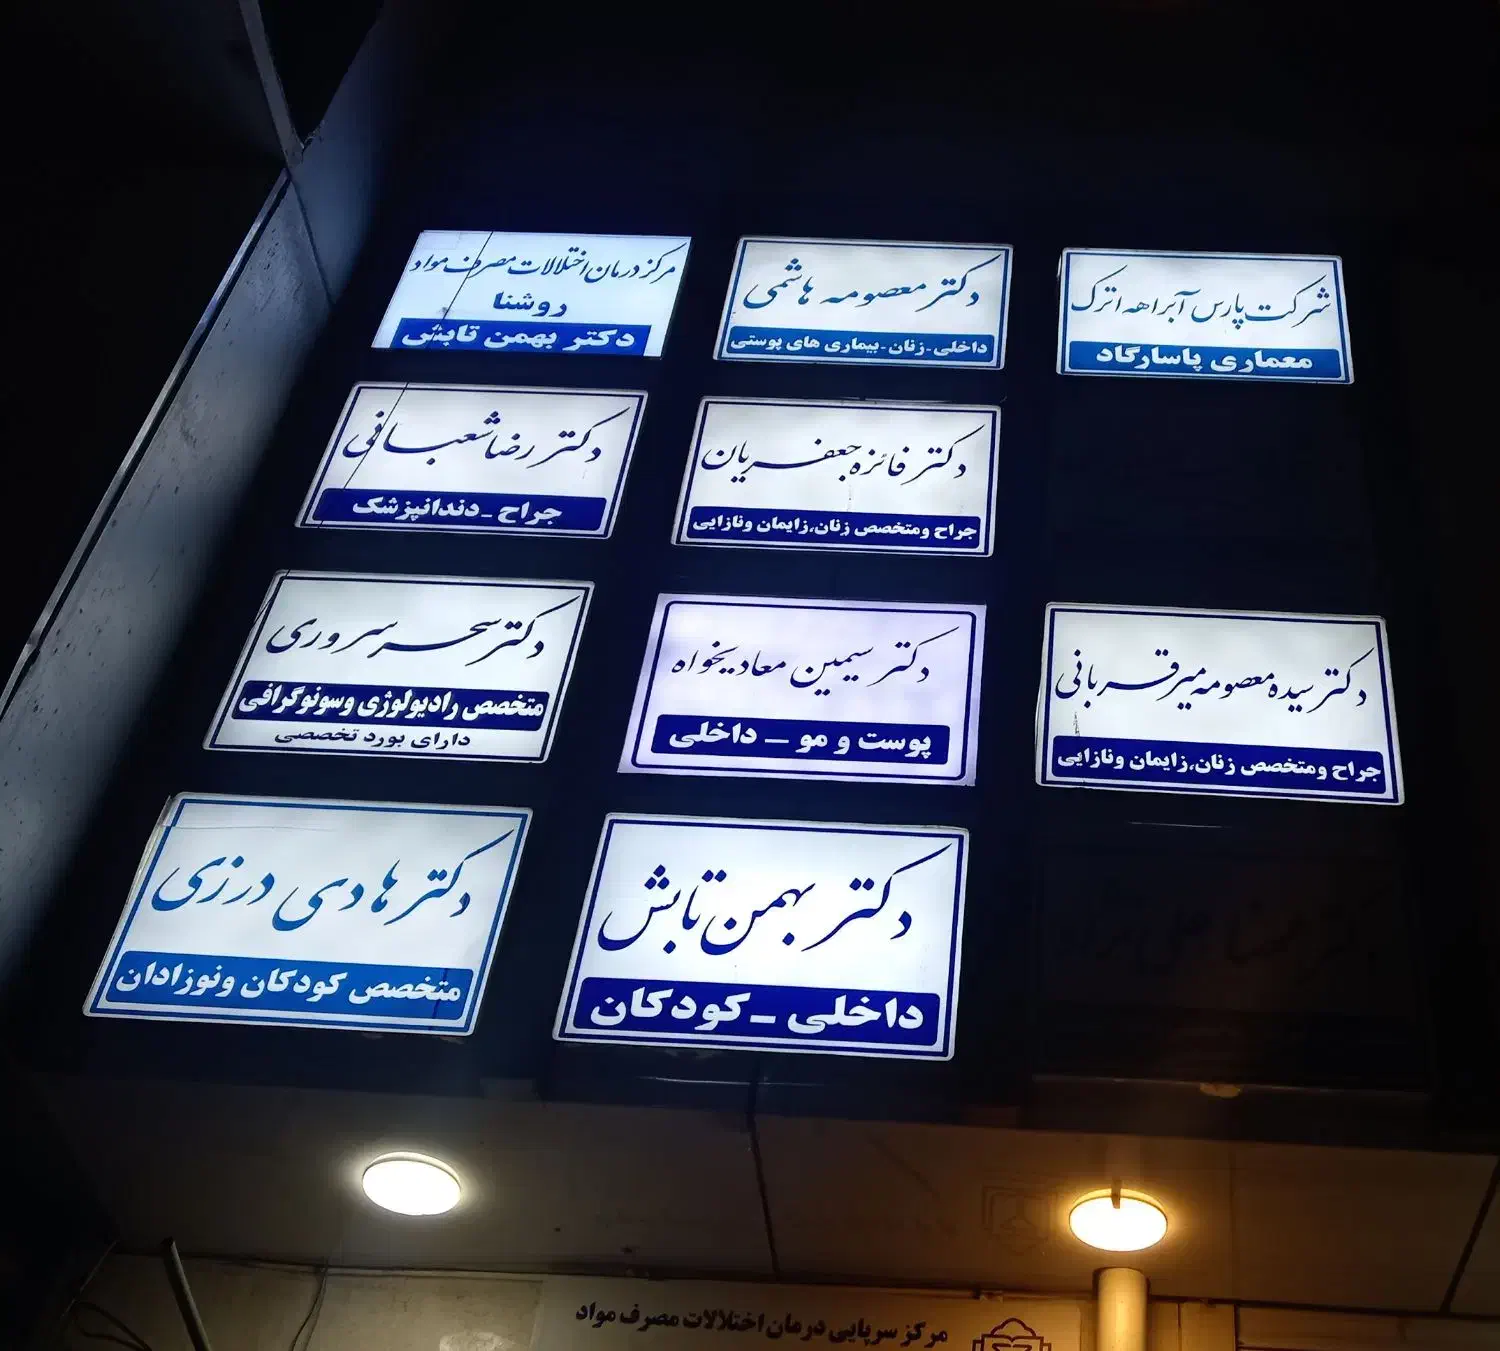 شرکت پارس آبراهه اترک
معماری پاسارگاد
دکتر معصومه هاشمی
داخلی-زنان-بیماری های پوستی
مرکز درمان اختلالات مصرف مواد
روشنا
دکتر بهمن تابش
دکتر فائزه جعفریان
جراح ومتخصص زنان،زایمان ونازایی
دکتر رضا شعبانی
جراح-دندانپزشک
دکتر سیده معصومه میرقربانی
جراح ومتخصص زنان،زایمان ونازایی
دکتر سیمین معادیخواه
پوست و مو - داخلی
دکتر سحر سروری
متخصص رادیولوژی وسونوگرافی
دارای بورد تخصصی
دکتر بهمن تابش
داخلی-کودکان
دکتر هادی درزی
متخصص کودکان ونوزادان
مرکز سرپایی درمان اختلالات مصرف مواد